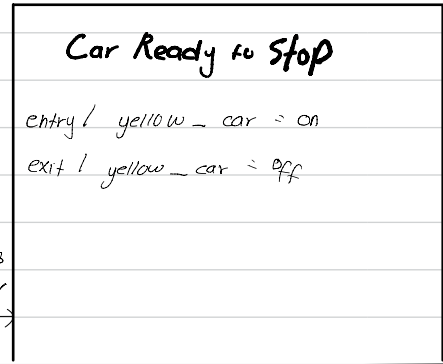 Car Ready to Stop
entry / yellow_car = on
exit / yellow_car = off